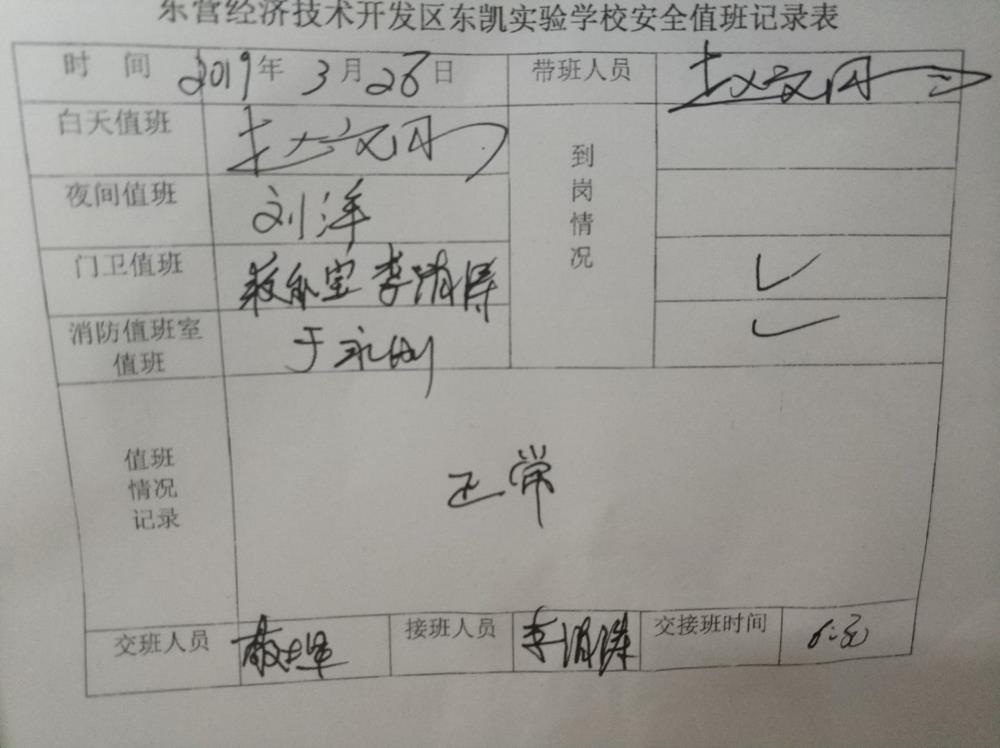 东营经济技术开发区东凯实验学校安全值班记录表
时 间 2019年 3月26日 带班人员 赵文丹
白天值班 赵文丹 到岗情况
夜间值班 刘洋
门卫值班 李 ✓
消防值班室值班 于永刚 ✓
值班情况记录 正常
交班人员 接班人员 李 交接班时间